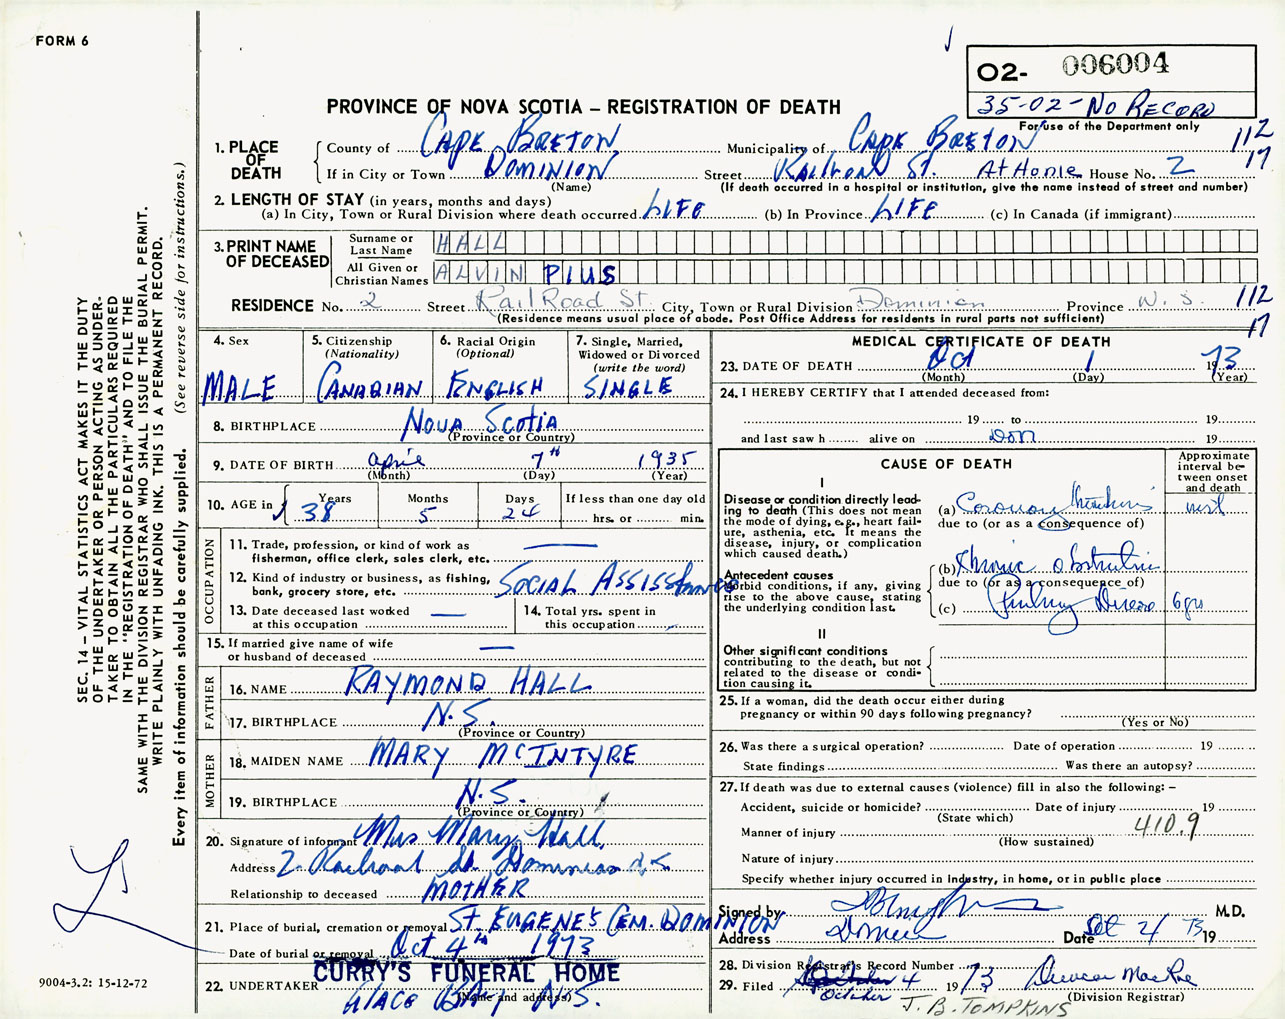 FORM 6
O2- 006004
35-02-NO RECORD
For use of the Department only
PROVINCE OF NOVA SCOTIA – REGISTRATION OF DEATH
1. PLACE OF DEATH
County of CAPE BRETON Municipality of CAPE BRETON 112
If in City or Town DOMINION Street Railroad St. At Home House No. 2 17
(Name) (If death occurred in a hospital or institution, give the name instead of street and number)
2. LENGTH OF STAY (in years, months and days)
(a) In City, Town or Rural Division where death occurred. LIFE (b) In Province LIFE (c) In Canada (if immigrant)
3. PRINT NAME OF DECEASED
Surname or Last Name HALL
All Given or Christian Names ALVIN PIUS
RESIDENCE No. 2 Street RailRoad St. City, Town or Rural Division Dominion Province N.S. 112
(Residence means usual place of abode. Post Office Address for residents in rural parts not sufficient) 17
4. Sex
MALE
5. Citizenship (Nationality)
CANADIAN
6. Racial Origin (Optional)
ENGLISH
7. Single, Married, Widowed or Divorced (write the word)
SINGLE
8. BIRTHPLACE NOVA SCOTIA
(Province or Country)
9. DATE OF BIRTH April 7th 1935
(Month) (Day) (Year)
10. AGE in Years Months Days If less than one day old
38 5 24 hrs. or min.
OCCUPATION
11. Trade, profession, or kind of work as
fisherman, office clerk, sales clerk, etc.
12. Kind of industry or business, as fishing,
bank, grocery store, etc. SOCIAL ASSISTANCE
13. Date deceased last worked
at this occupation
14. Total yrs. spent in
this occupation
15. If married give name of wife
or husband of deceased
FATHER
16. NAME RAYMOND HALL
17. BIRTHPLACE N.S.
(Province or Country)
MOTHER
18. MAIDEN NAME MARY McINTYRE
19. BIRTHPLACE N.S.
(Province or Country)
20. Signature of informant Mrs Mary Hall
Address 2 Railroad St. Dominion N.S.
Relationship to deceased MOTHER
21. Place of burial, cremation or removal ST. EUGENE'S CEM. DOMINION
Date of burial or removal Oct 4th 1973
CURRY'S FUNERAL HOME
22. UNDERTAKER GLACE BAY N.S.
(Name and address)
MEDICAL CERTIFICATE OF DEATH
23. DATE OF DEATH Oct 1 1973
(Month) (Day) (Year)
24. I HEREBY CERTIFY that I attended deceased from:
19 to 19
and last saw h alive on 19
CAUSE OF DEATH
Approximate interval between onset and death
I
Disease or condition directly leading to death (This does not mean the mode of dying, e.g., heart failure, asthenia, etc. It means the disease, injury, or complication which caused death.)
(a) Coronary Thrombosis inst
due to (or as a consequence of)
Antecedent causes
Morbid conditions, if any, giving rise to the above cause, stating the underlying condition last.
(b) Chronic obstructive
due to (or as a consequence of)
(c) Pulmonary Disease 6 yrs
II
Other significant conditions
contributing to the death, but not related to the disease or condition causing it.
25. If a woman, did the death occur either during
pregnancy or within 90 days following pregnancy?
(Yes or No)
26. Was there a surgical operation? Date of operation 19
State findings Was there an autopsy?
27. If death was due to external causes (violence) fill in also the following: –
Accident, suicide or homicide? Date of injury 19
(State which)
Manner of injury 410.9
(How sustained)
Nature of injury
Specify whether injury occurred in industry, in home, or in public place
Signed by M.D.
Address Dominion Date Oct 2/ 1973
28. Division Registrar's Record Number
29. Filed October 4 1973 Duncan MacRae
(Division Registrar)
J.B. TOMPKINS
SEC. 14 – VITAL STATISTICS ACT MAKES IT THE DUTY
OF THE UNDERTAKER OR PERSON ACTING AS UNDERTAKER
TO OBTAIN ALL THE PARTICULARS REQUIRED
IN THE "REGISTRATION OF DEATH" AND TO FILE THE
SAME WITH THE DIVISION REGISTRAR WHO SHALL ISSUE THE BURIAL PERMIT.
WRITE PLAINLY WITH UNFADING INK. THIS IS A PERMANENT RECORD.
Every item of information should be carefully supplied. (See reverse side for instructions.)
9004-3.2: 15-12-72